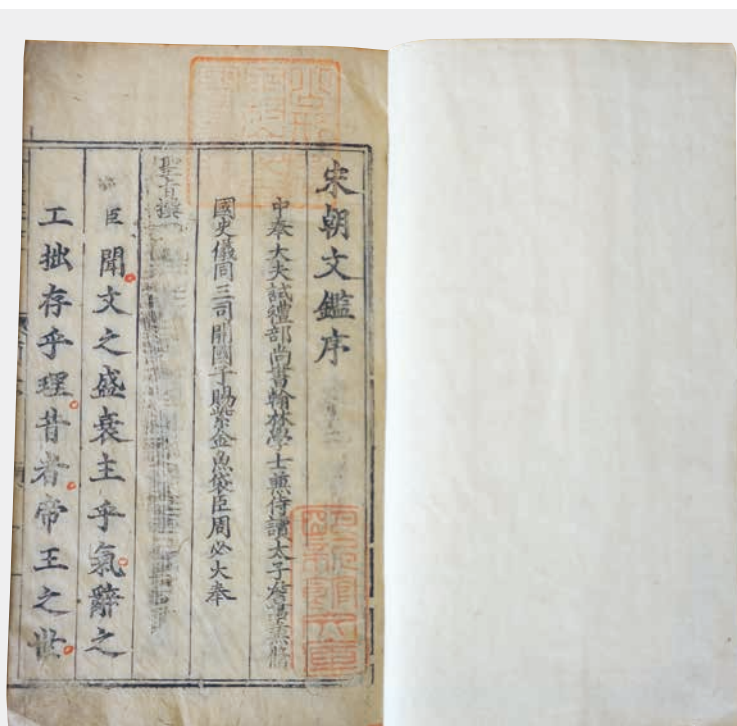 宋朝文鑑序
中奉大夫試禮部尚書翰林學士兼侍讀太子詹事兼脩
國史儀同三司開國子賜紫金魚袋臣周必大奉
聖旨撰
臣聞文之盛衰主乎氣辭之
工拙存乎理昔者帝王之世